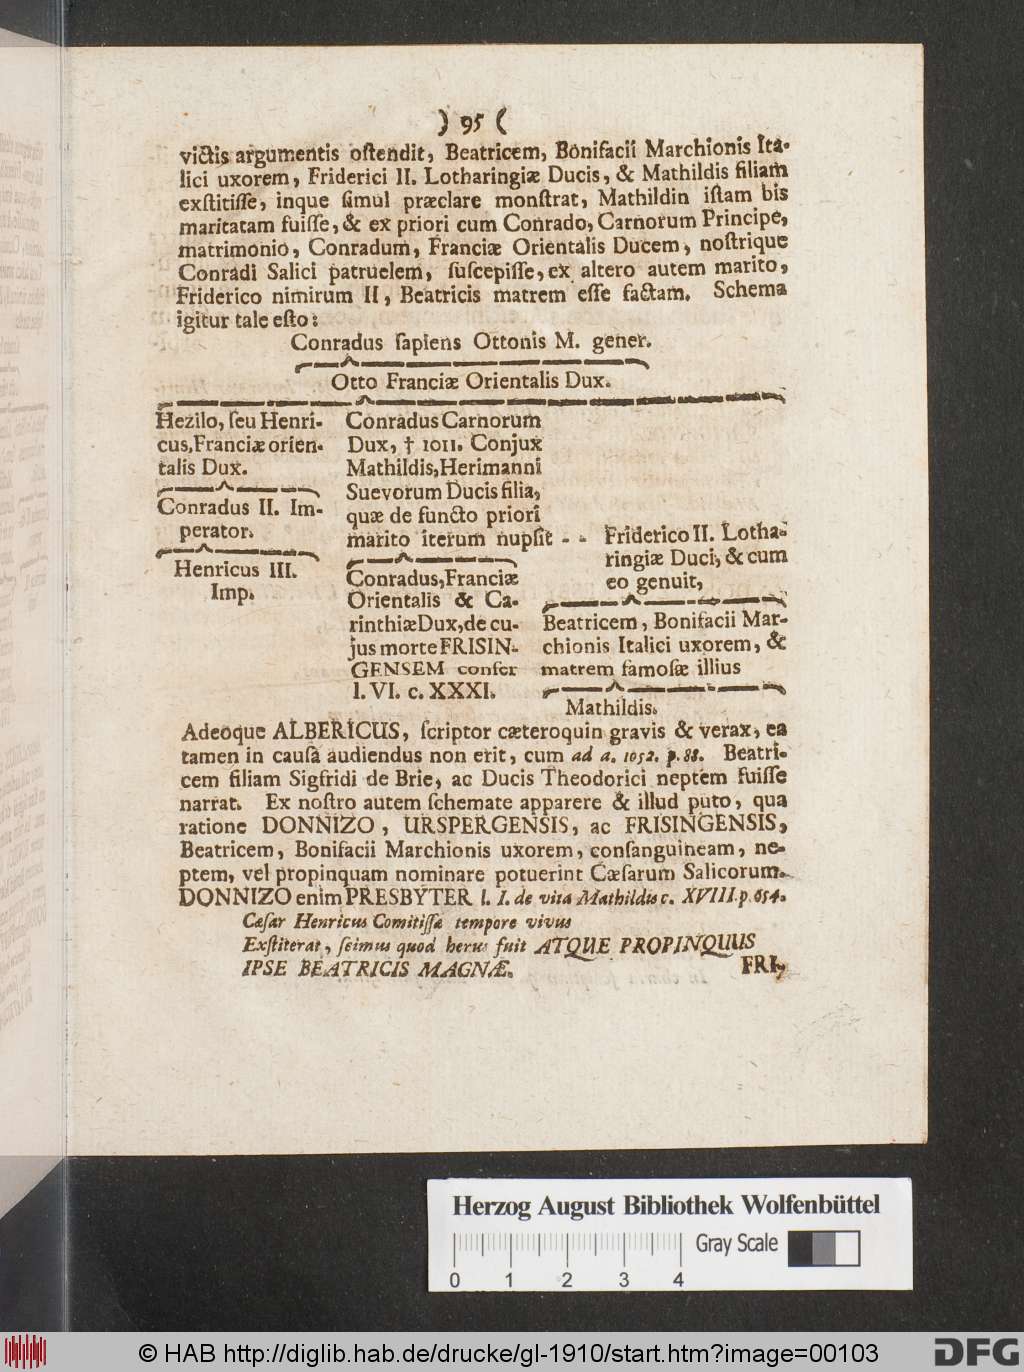 ) 95 (
victis argumentis ostendit, Beatricem, Bonifacii Marchionis Ita-
lici uxorem, Friderici II. Lotharingiæ Ducis, & Mathildis filiam
exstitisse, inque simul præclare monstrat, Mathildin istam bis
maritatam fuisse, & ex priori cum Conrado, Carnorum Principe,
matrimonio, Conradum, Franciæ Orientalis Ducem, nostrique
Conradi Salici patruelem, suscepisse, ex altero autem marito,
Friderico nimirum II, Beatricis matrem esse factam. Schema
igitur tale esto:
Conradus sapiens Ottonis M. gener.
Otto Franciæ Orientalis Dux.
Hezilo, seu Henri-
cus, Franciæ orien-
talis Dux.
Conradus II. Im-
perator.
Henricus III.
Imp.
Conradus Carnorum
Dux, † 1011. Conjux
Mathildis, Herimanni
Suevorum Ducis filia,
quæ de functo priori
marito iterum nupsit - -
Conradus, Franciæ
Orientalis & Ca-
rinthiæ Dux, de cu-
jus morte FRISIN-
GENSEM confer
l. VI. c. XXXI.
Friderico II. Lotha-
ringiæ Duci, & cum
eo genuit,
Beatricem, Bonifacii Mar-
chionis Italici uxorem, &
matrem famosæ illius
Mathildis.
Adeoque ALBERICUS, scriptor cæteroquin gravis & verax, ea
tamen in causâ audiendus non erit, cum ad a. 1052. p. 88. Beatri-
cem filiam Sigfridi de Brie, ac Ducis Theodorici neptem fuisse
narrat. Ex nostro autem schemate apparere & illud puto, qua
ratione DONNIZO, URSPERGENSIS, ac FRISINGENSIS,
Beatricem, Bonifacii Marchionis uxorem, consanguineam, ne-
ptem, vel propinquam nominare potuerint Cæsarum Salicorum.
DONNIZO enim PRESBYTER l. I. de vita Mathildis c. XVIII. p. 654.
Cæsar Henricus Comitissæ tempore vivus
Exstiterat, scimus quod herus fuit ATQUE PROPINQUUS
IPSE BEATRICIS MAGNÆ.
FRI,
Herzog August Bibliothek Wolfenbüttel
Gray Scale
0 1 2 3 4
© HAB http://diglib.hab.de/drucke/gl-1910/start.htm?image=00103
DFG